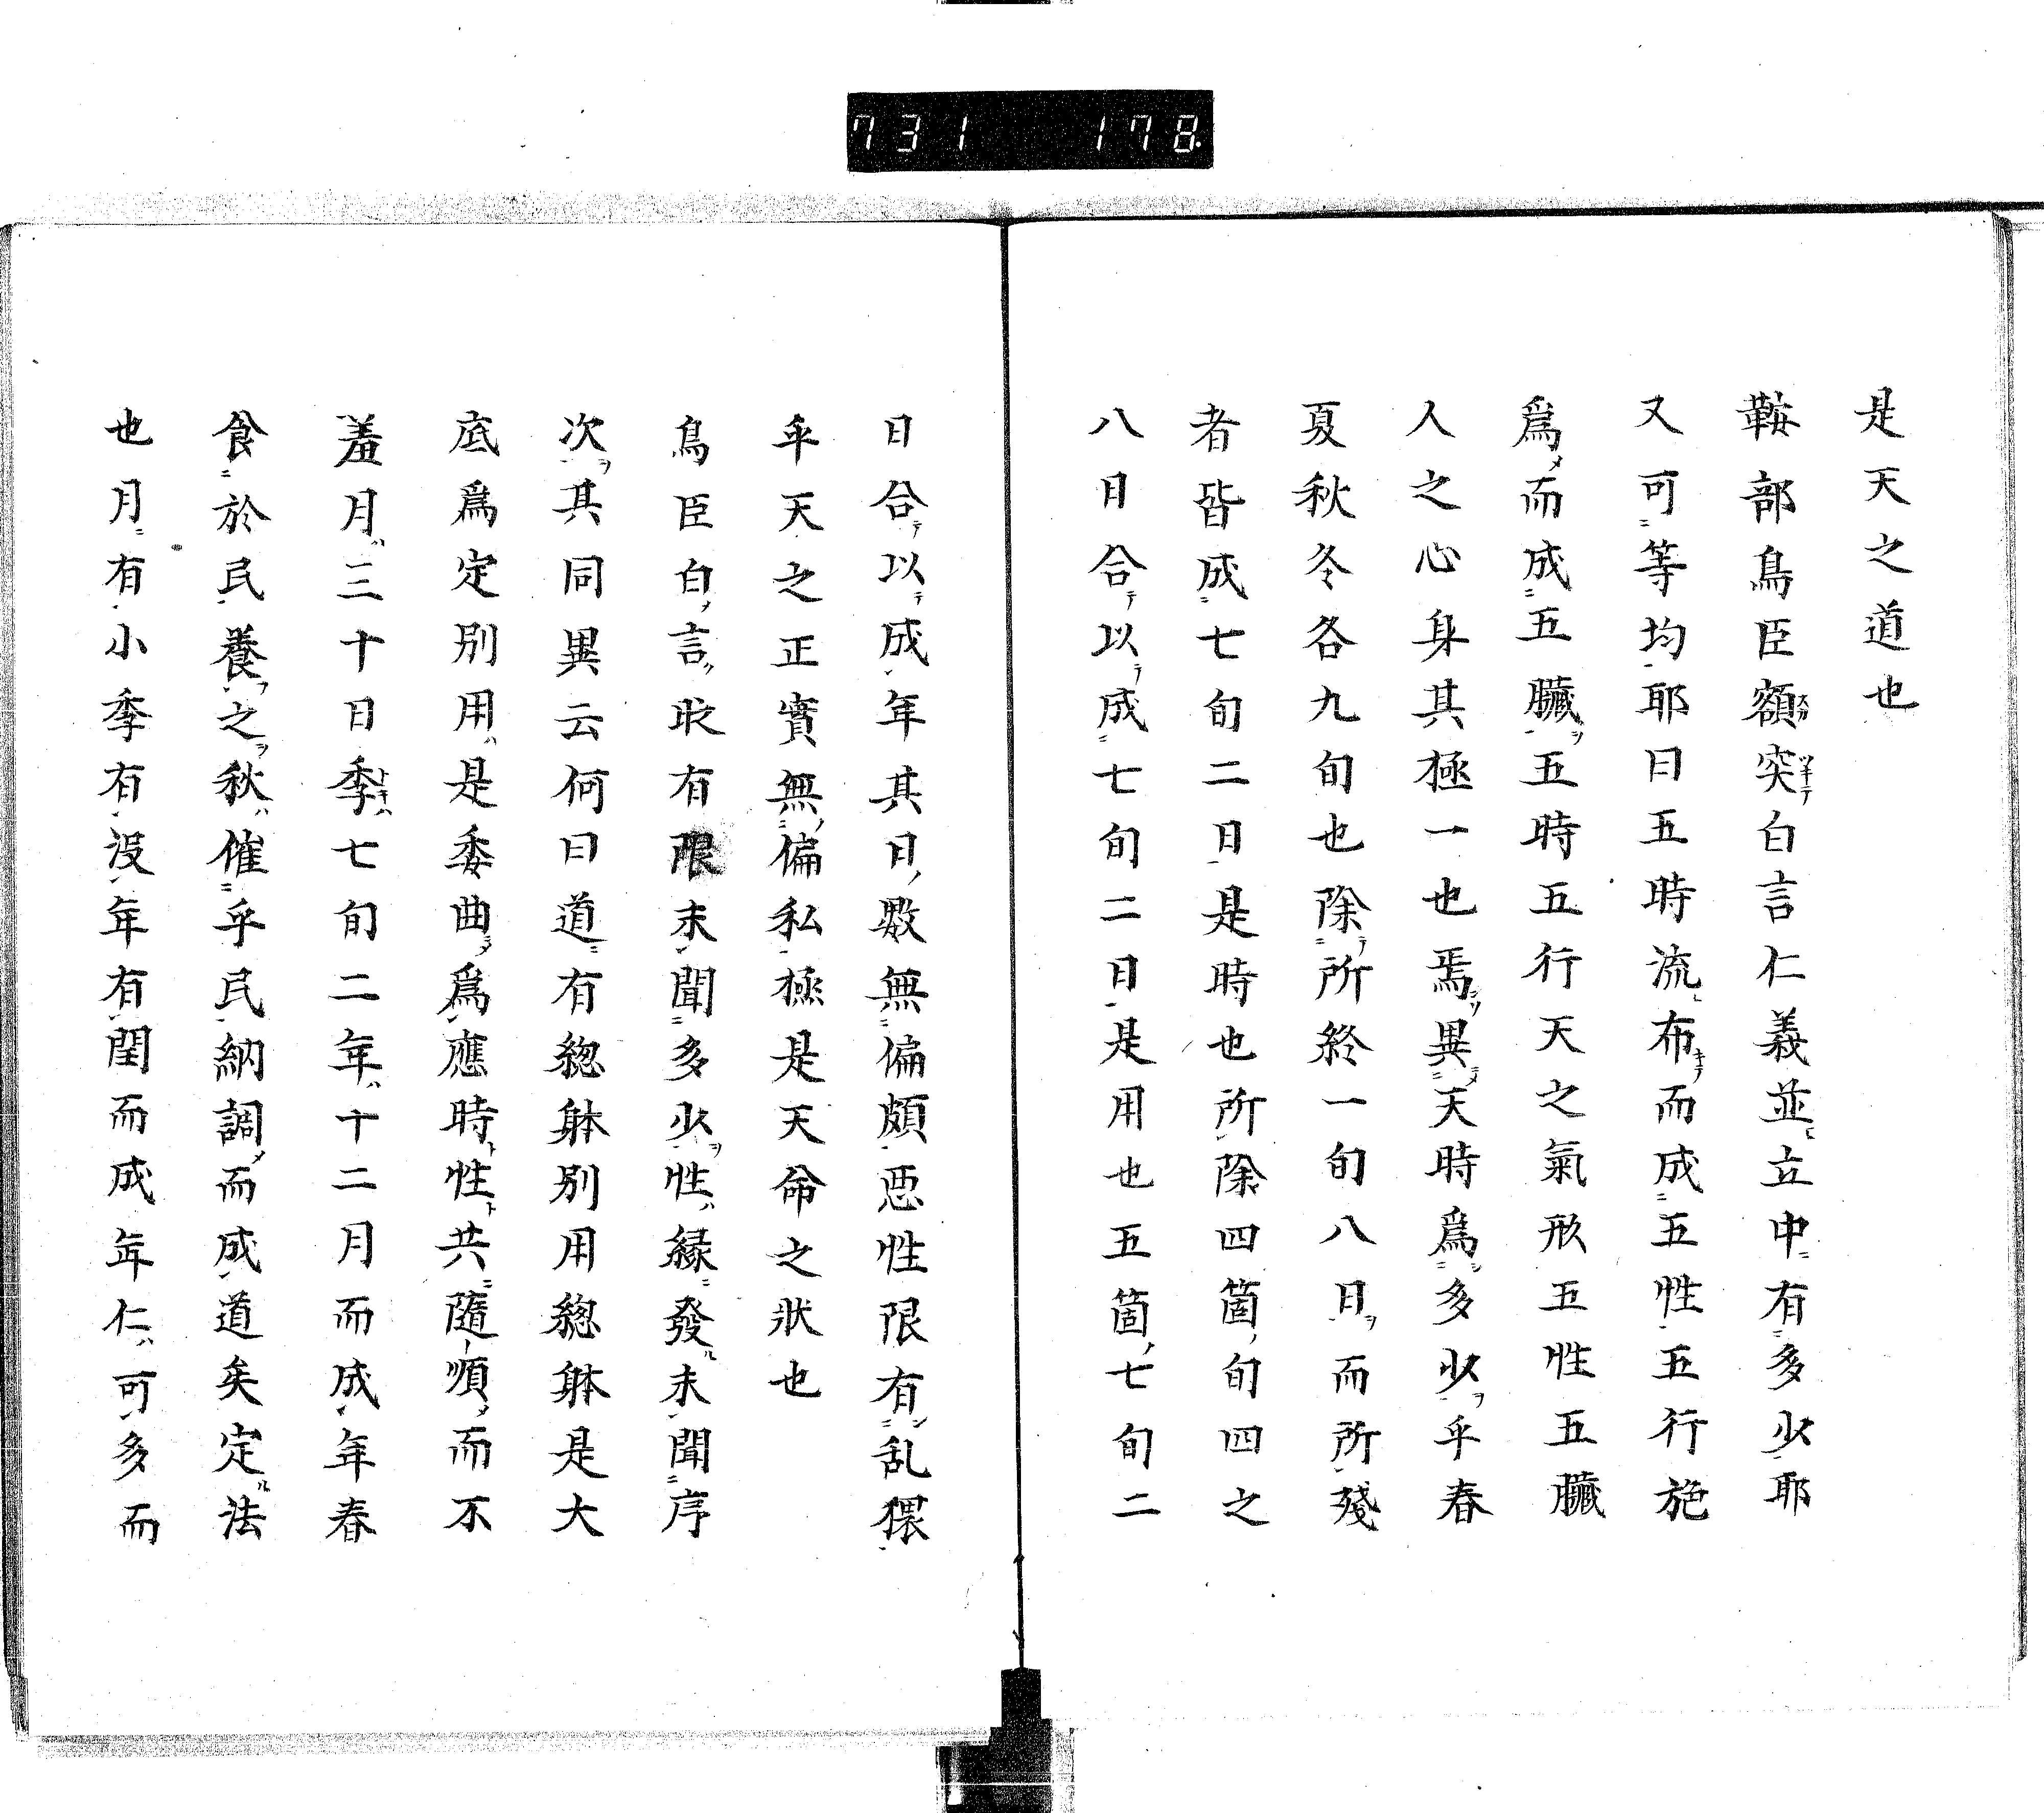 731 178
是天之道也
鞍部鳥臣額突白言仁義並立中有多少耶
又可等均耶曰五時流布而成五性五行施
爲而成五臟五時五行天之氣形五性五臟
人之心身其極一也焉異天時爲多少乎春
夏秋冬各九旬也除所終一旬八日而所殘
者皆成七旬二日是時也所除四箇旬四之
八日合以成七旬二日是用也五箇七旬二
日合以成年其日數無偏頗悪性限有乱猥
乎天之正實無偏私極是天命之狀也
鳥臣白言敢有限未聞多少性緣發未聞序
次其同異云何曰道有總躰別用總躰是大
底爲定別用是委曲爲應時性共隨順而不
羞月三十日季七旬二年十二月而成年春
食於民養之秋催乎民納調而成道矣定法
也月有小季有没年有閏而成年仁可多而